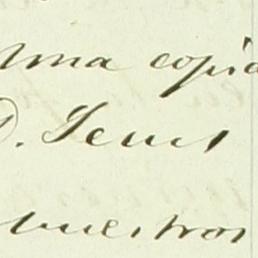 una copia
D. Jesus
nuestros